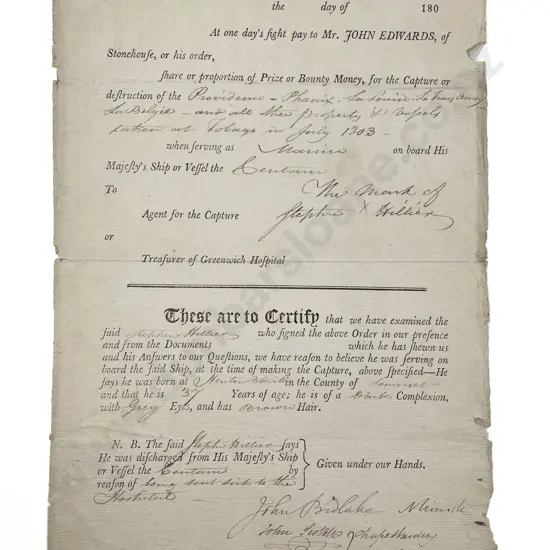 the day of 180
At one day's ſight pay to Mr. JOHN EDWARDS, of
Stonehouse, or his order,
ſhare or proportion of Prize or Bounty Money, for the Capture or
deſtruction of the Providence - Phœnix - La Louise - Le
La Belgie - and all other property & Vessels
taken at Tobago in July 1803 -
when ſerving as Marine on board His
Majeſty's Ship or Veſſel the Centaur
To The Mark of
Agent for the Capture Stephen X Hillier
or
Treaſurer of Greenwich Hoſpital
These are to Certify that we have examined the
ſaid Stephen Hillier who ſigned the above Order in our preſence
and from the Documents which he has ſhewn us
and his Anſwers to our Queſtions, we have reaſon to believe he was ſerving on
board the ſaid Ship, at the time of making the Capture, above ſpecified—He
ſays he was born at in the County of Somerset
and that he is 37 Years of age; he is of a Dark Complexion,
with Grey Eyes, and has Brown Hair.
N. B. The ſaid Steph Hillier ſays
He was diſcharged from His Majeſty's Ship
or Veſſel the Centaur by
reaſon of being sent sick to the
Given under our Hands.
John Bidlake
John Chapel Warden